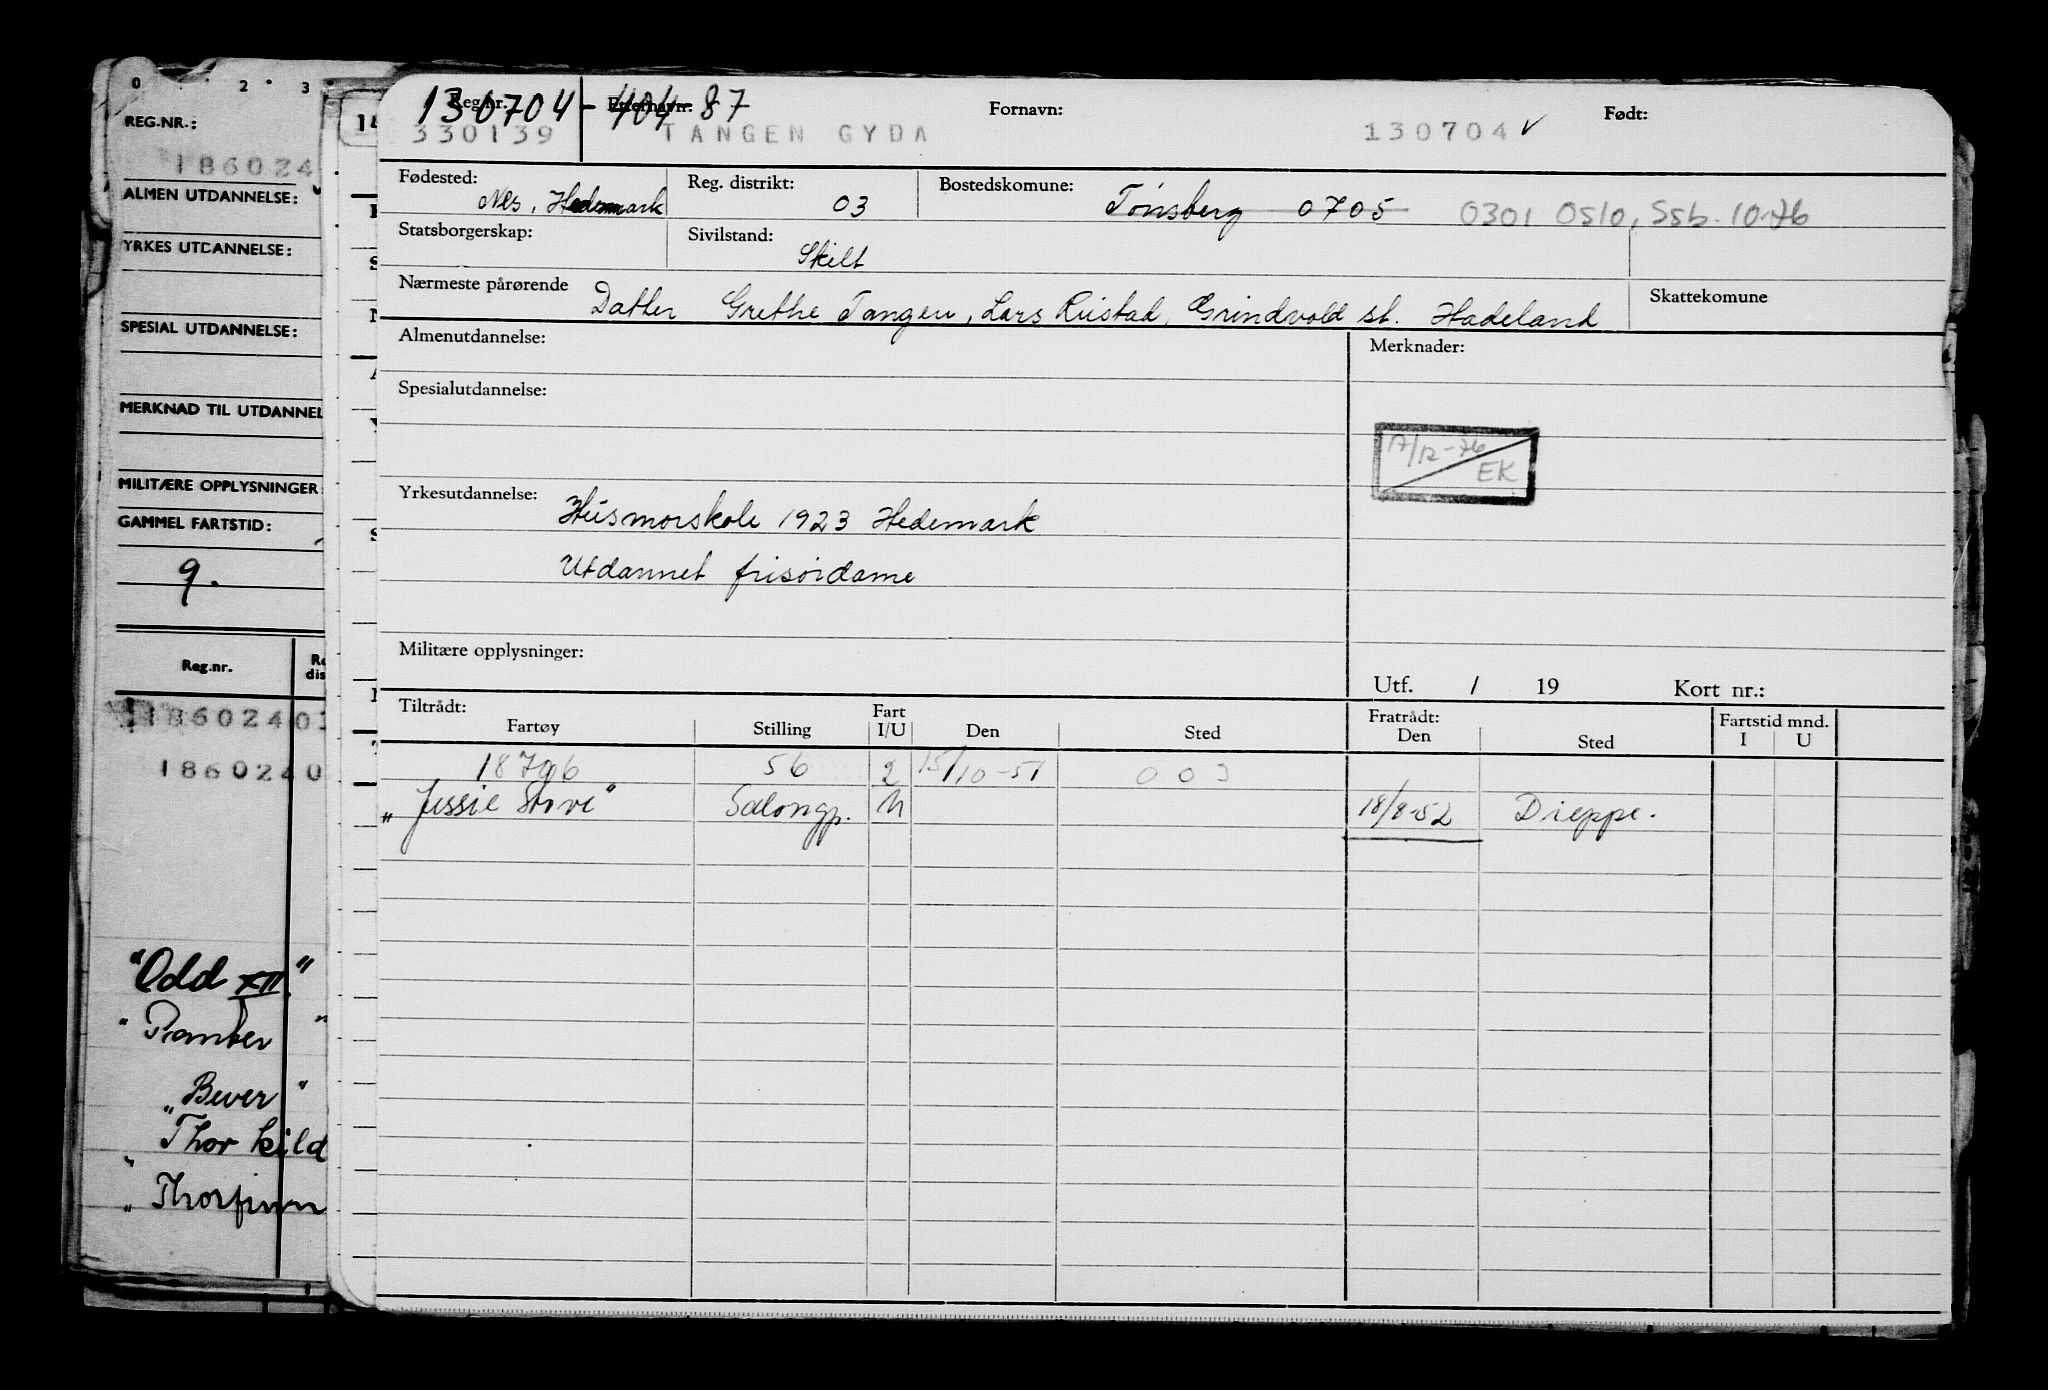 0 · 2 · 3
REG.NR.:
186024
ALMEN UTDANNELSE:
YRKES UTDANNELSE:
SPESIAL UTDANNELSE:
MERKNAD TIL UTDANNEL
MILITÆRE OPPLYSNINGER:
GAMMEL FARTSTID:
9.
Reg.nr.
18602403
1860240
"Odd XII"
"Panter"
"Bever"
"Thorkild
"Thorfinn
14
130704-404 87
Reg.nr. Etternavn: Fornavn: Født:
330139 TANGEN GYDA 130704 ✓
Fødested: Nes, Hedemark Reg. distrikt: 03 Bostedskomune: Tønsberg 0705 0301 Oslo, Ssb. 10-76
Statsborgerskap: Sivilstand: Skilt
Nærmeste pårørende Datter Grethe Tangen, Lars Rustad, Grindvold st. Hadeland Skattekomune
Almenutdannelse: Merknader:
Spesialutdannelse:
17/12-76
EK
Yrkesutdannelse: Husmorskole 1923 Hedemark
Utdannet frisørdame
Militære opplysninger:
Utf. / 19 Kort nr.:
Tiltrådt: Fart Fratrådt: Fartstid mnd.
Fartøy Stilling I/U Den Sted Den Sted I U
18796 56 2 15/10-51 003
"Jessie Stove" Salongp. U 18/8-52 Dieppe.